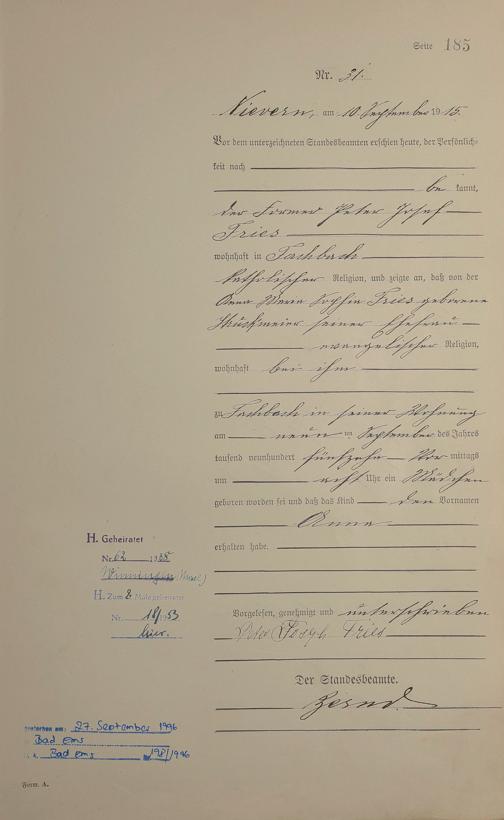 Seite 185
Nr. 31.
Nievern, am 10. September 1915.
Vor dem unterzeichneten Standesbeamten erschien heute, der Persönlich-
keit nach
be kannt,
der Former Peter Josef
Fries
wohnhaft in Fachbach
katholischer Religion, und zeigte an, daß von der
Anna Maria Sophia Fries geborene
seiner Ehefrau
evangelischer Religion,
wohnhaft bei ihm
zu Fachbach in seiner Wohnung
am neun ten September des Jahres
tausend neunhundert fünfzehn Vor mittags
um acht Uhr ein Mädchen
geboren worden sei und daß das Kind den Vornamen
Anna
erhalten habe.
H. Geheiratet
Nr. 62 1935
Winningen (Mosel)
H. Zum 2 Male geheiratet
Nr. 18/1953
hier.
Vorgelesen, genehmigt und unterschrieben
Peter Joseph Fries
Der Standesbeamte.
gestorben am: 27. September 1996
Bad Ems
Bad Ems 198/1996
Form. A.